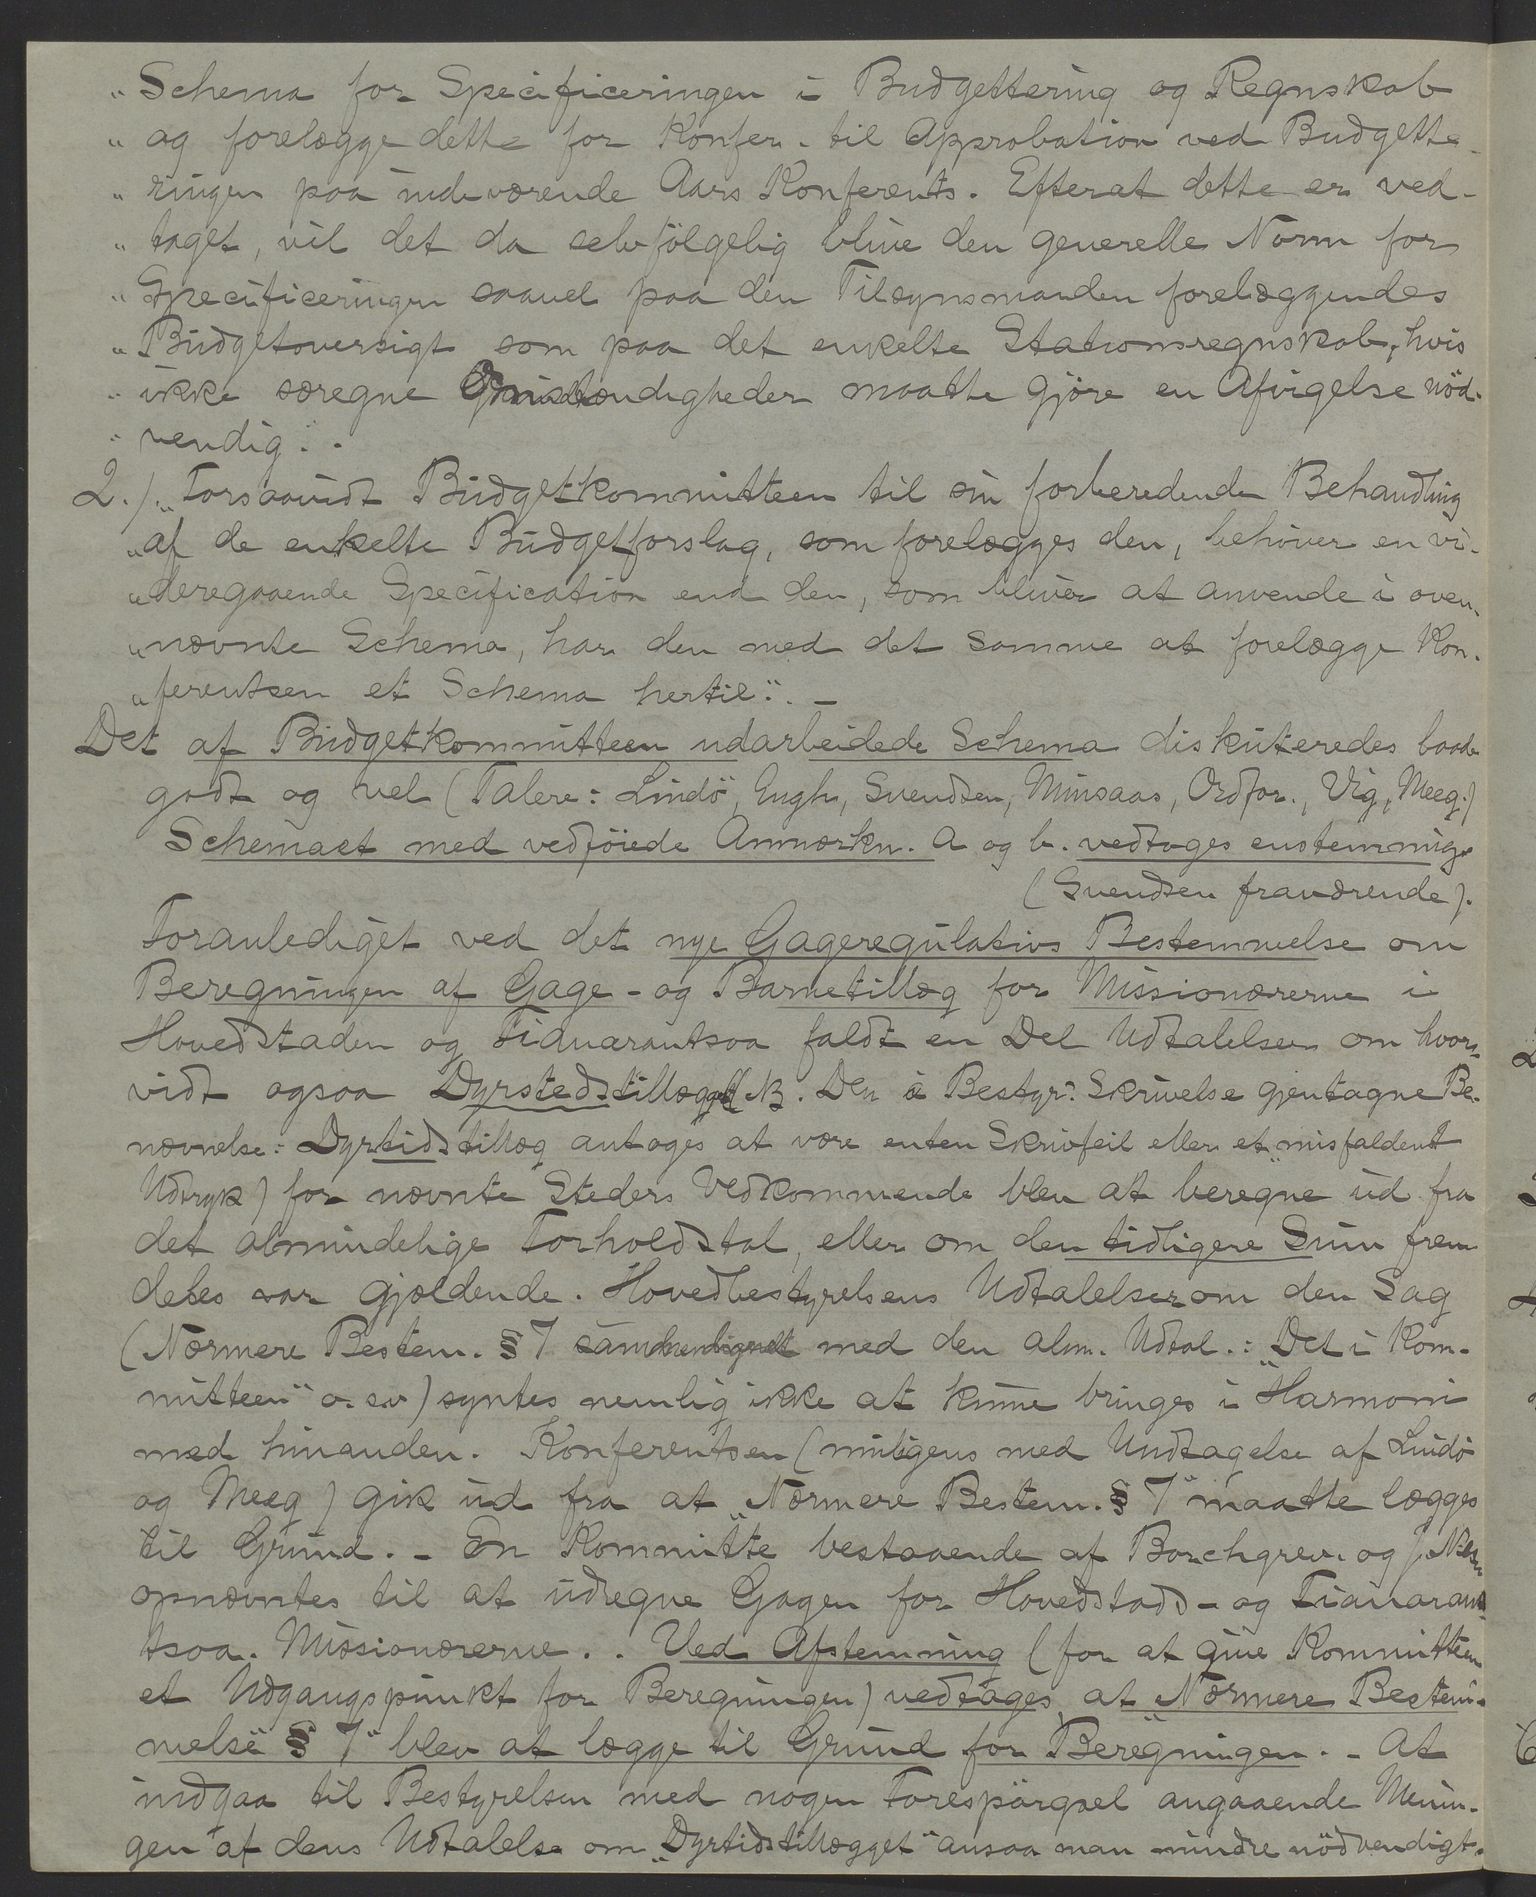 „Schema for Specificeringen i Budgettering og Regnskab
„og forelægge dette for Konfer. til Approbation ved Budgette-
„ringen paa indeværende Aars Konferents. Efterat dette er ved-
„taget, vil det da selvfölgelig blive den generelle Norm for
„Specificeringen saavel paa den Tilsynsmanden forelæggendes
„Budgetoversigt som paa det enkelte Stationsregnskab, hvis
„ikke særegne Omstændigheder maatte gjöre en Afvigelse nöd-
„vendig“.
2.) „Forsaavidt Budgetkommitteen til sin forberedende Behandling
„af de enkelte Budgetforslag, som forelægges den, behöver en vi-
„deregaaende Specification end den, som bliver at anvende i oven-
„nævnte Schema, har den med det samme at forelægge Kon-
„ferentsen et Schema hertil“. –
Det af Budgetkommitteen udarbeidede Schema diskuteredes baade
godt og vel (Talere: Lindö, Engh, Svendsen, Minsaas, Ordfor., Vig, Meeg.)
Schemaet med vedföiede Anmærkn. a og b. vedtoges enstemmig.
(Svendsen fraværende).
Foranlediget ved det nye Gageregulativs Bestemmelse om
Beregningen af Gage- og Barnetillæg for Missionærerne i
Hovedstaden og Fianarantsoa faldt en Del Udtalelser om hvor-
vidt ogsaa Dyrstedstillægget (NB. Den i Bestyr.s Skrivelse gjentagne Be-
nævnelse: Dyrtidstillæg antoges at være enten Skrivfeil eller et „misfaldent
Udtryk) for nævnte Steders Vedkommende blev at beregne ud fra
det almindelige Forholdstal, eller om den tidligere Sum frem
deles var gjældende. Hovedbestyrelsens Udtalelser om den Sag
(Nærmere Bestem. § 7 sammenlignet med den alm. Udtal.: „Det i Kom-
mitteen“ o.s.v) syntes nemlig ikke at kunne bringes i Harmoni
med hinanden. Konferentsen (muligens med Undtagelse af Lindö
og Meeg) gik ud fra at „Nærmere Bestem. § 7“ maatte lægges
til Grund. – En Kommitte bestaaende af Borchgrev. og J. Nilsen
opnævntes til at udregne Gagen for Hovedstads- og Fianaran-
tsoa. Missionærerne. . Ved Afstemning (for at give Kommitteen
et Udgangspunkt for Beregningen) vedtages at „Nærmere Bestem-
melse § 7“ blev at lægge til Grund for Beregningen. – At
indgaa til Bestyrelsen med nogen Forespörgsel angaaende Menin-
gen af dens Udtalelse om „Dyrtidstillægget“ ansaa man mindre nödvendigt.